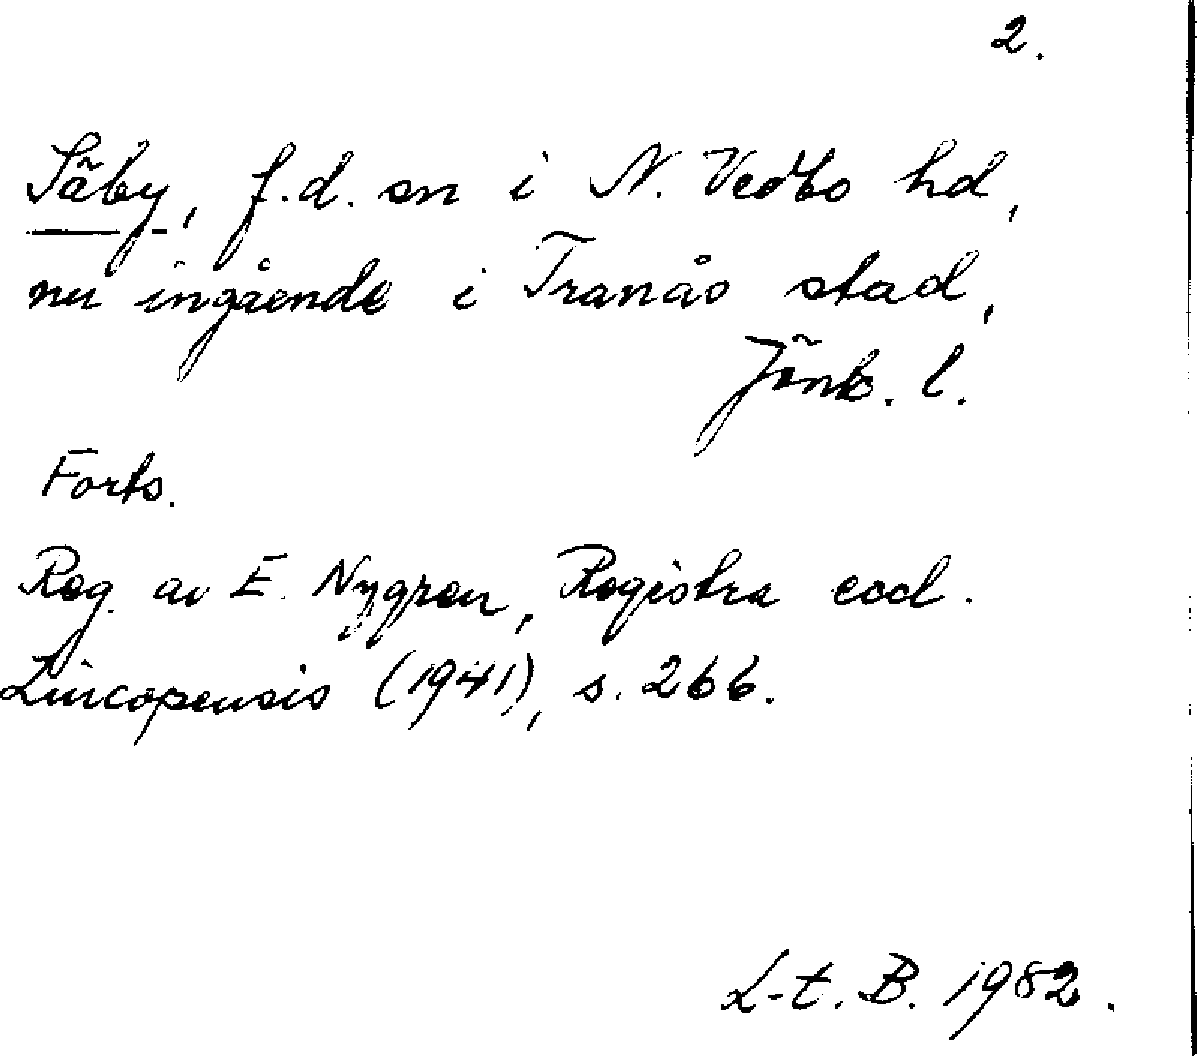 2.
Säby, f.d. sn i N. Vedbo hd,
nu ingående i Tranås stad,
Jönk. l.
Forts.
Reg. av E. Nygren, Registra eccl.
Lincopensis (1941), s. 266.
L-t. B. 1982.